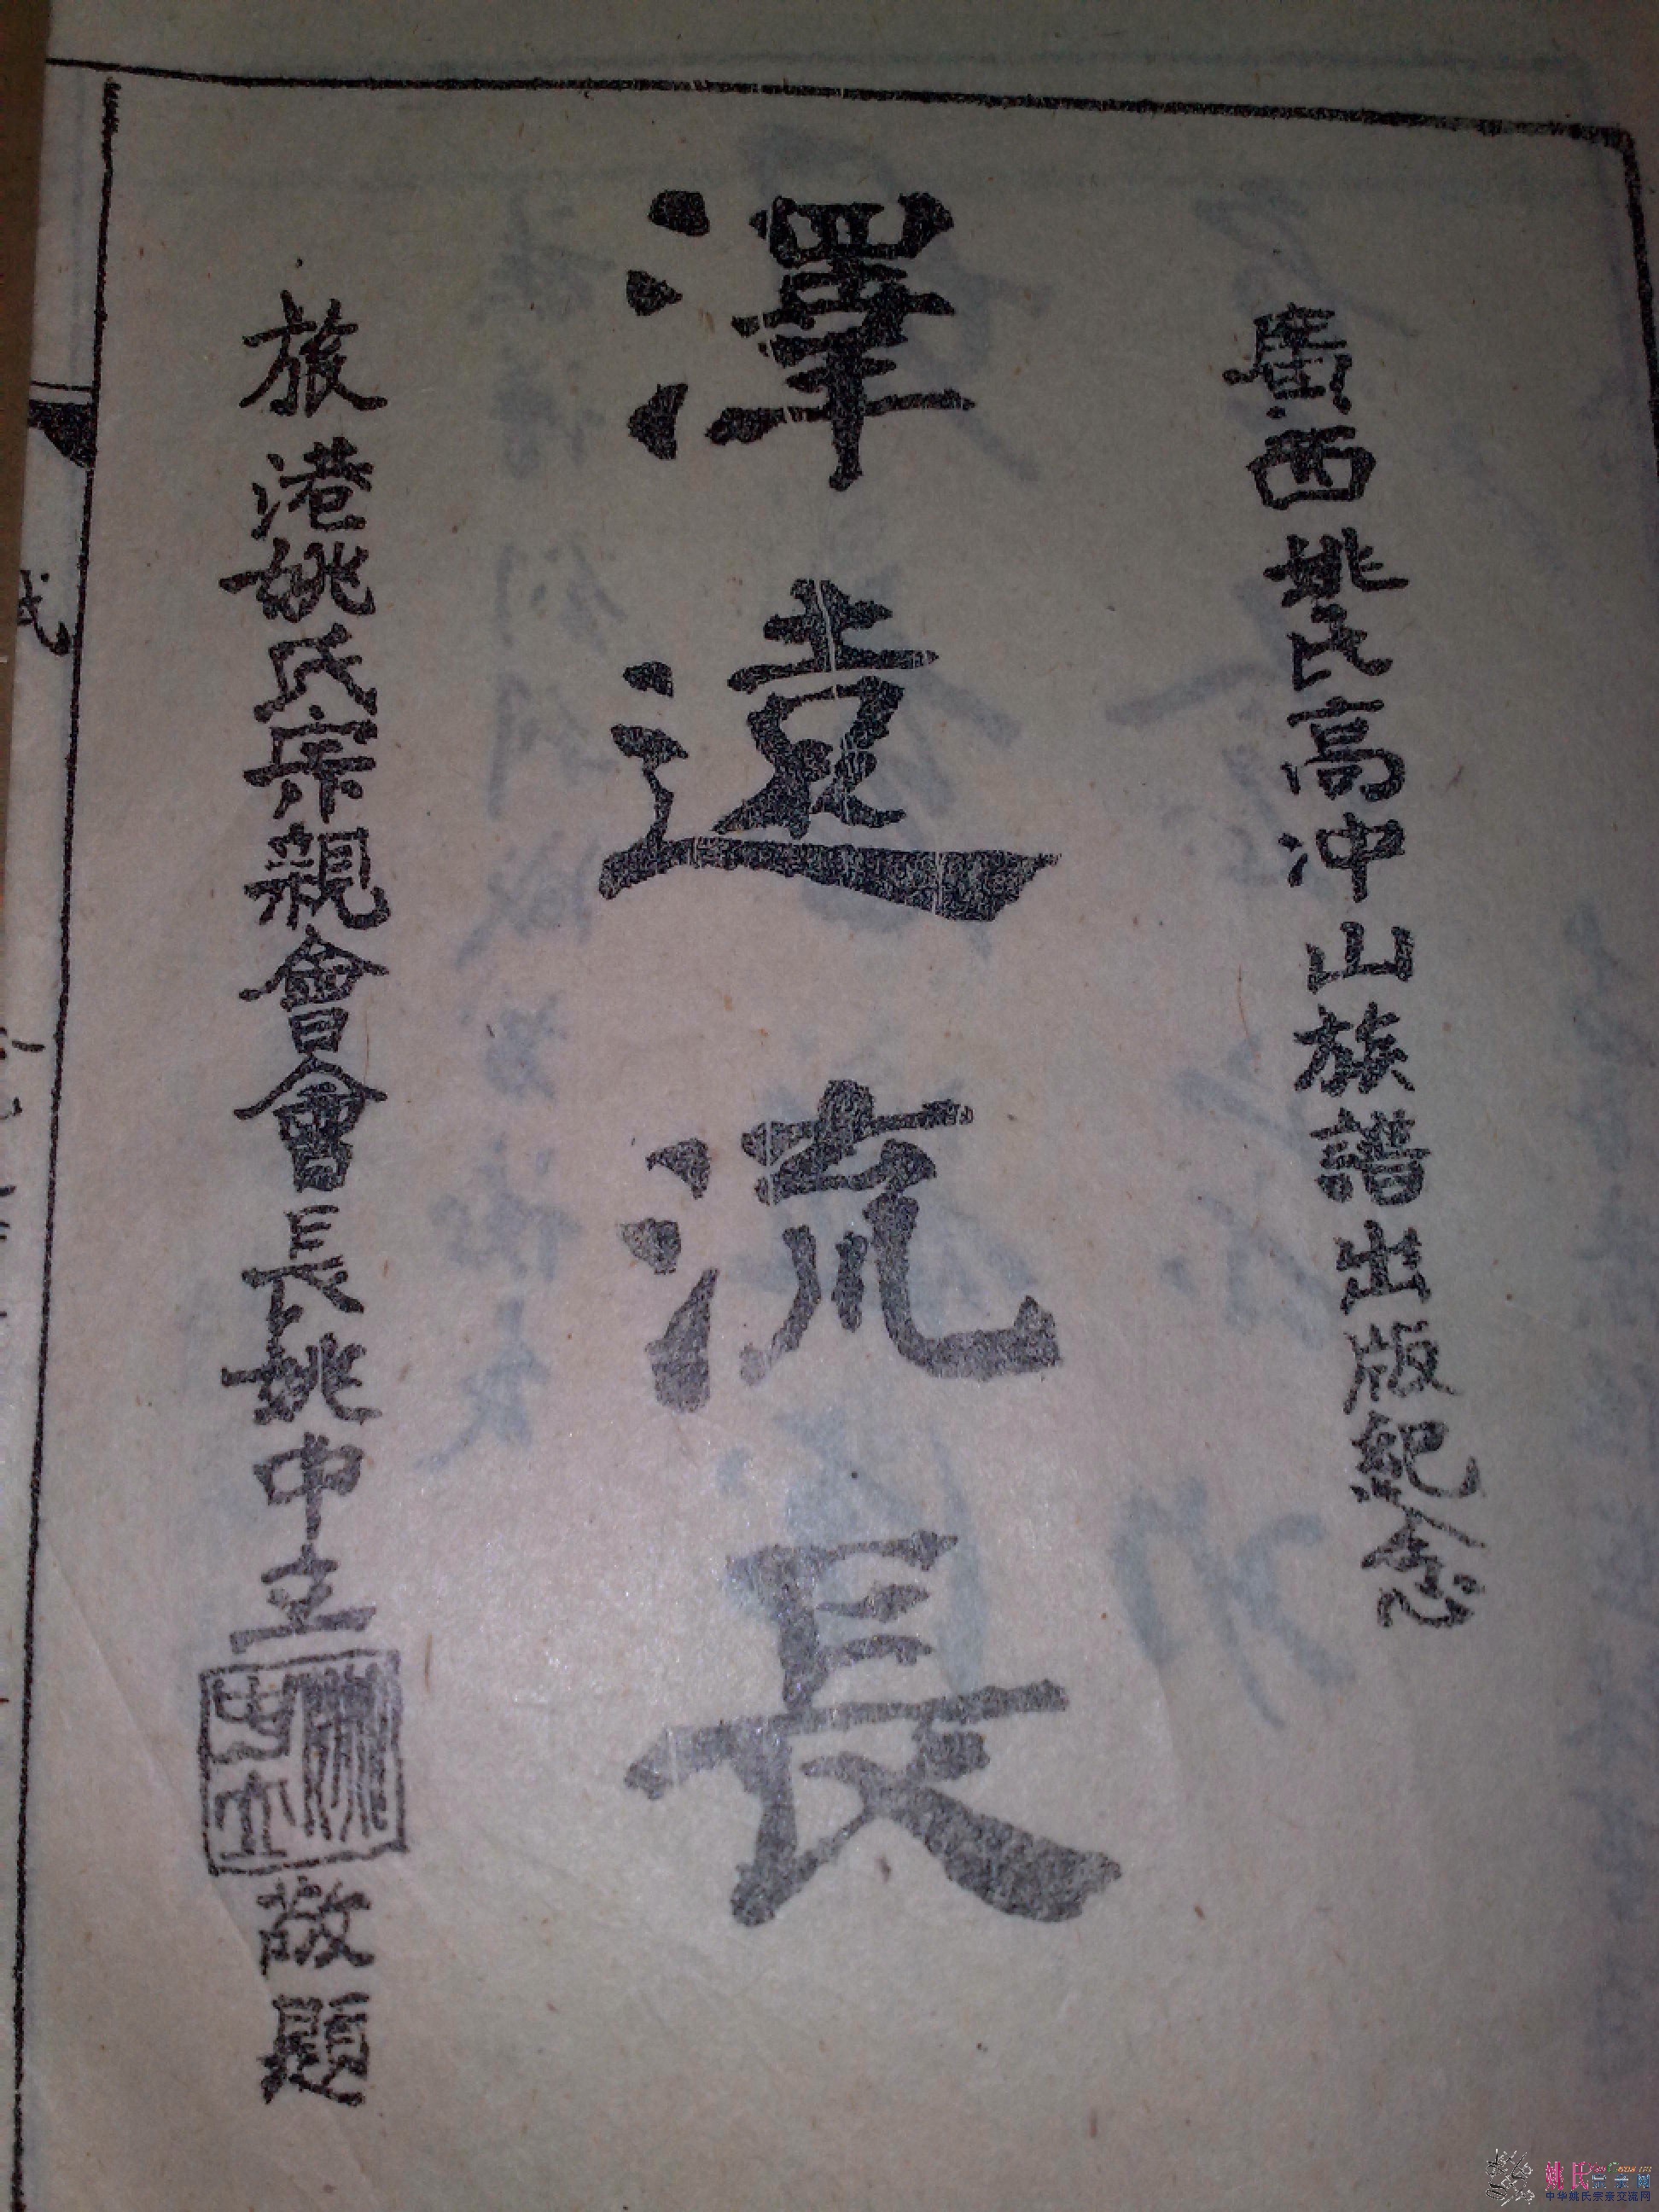 廣西姚氏高冲山族譜出版紀念
澤遠流長
旅港姚氏宗親會會長姚中立
敬題
氏
中华姚氏宗亲交流网